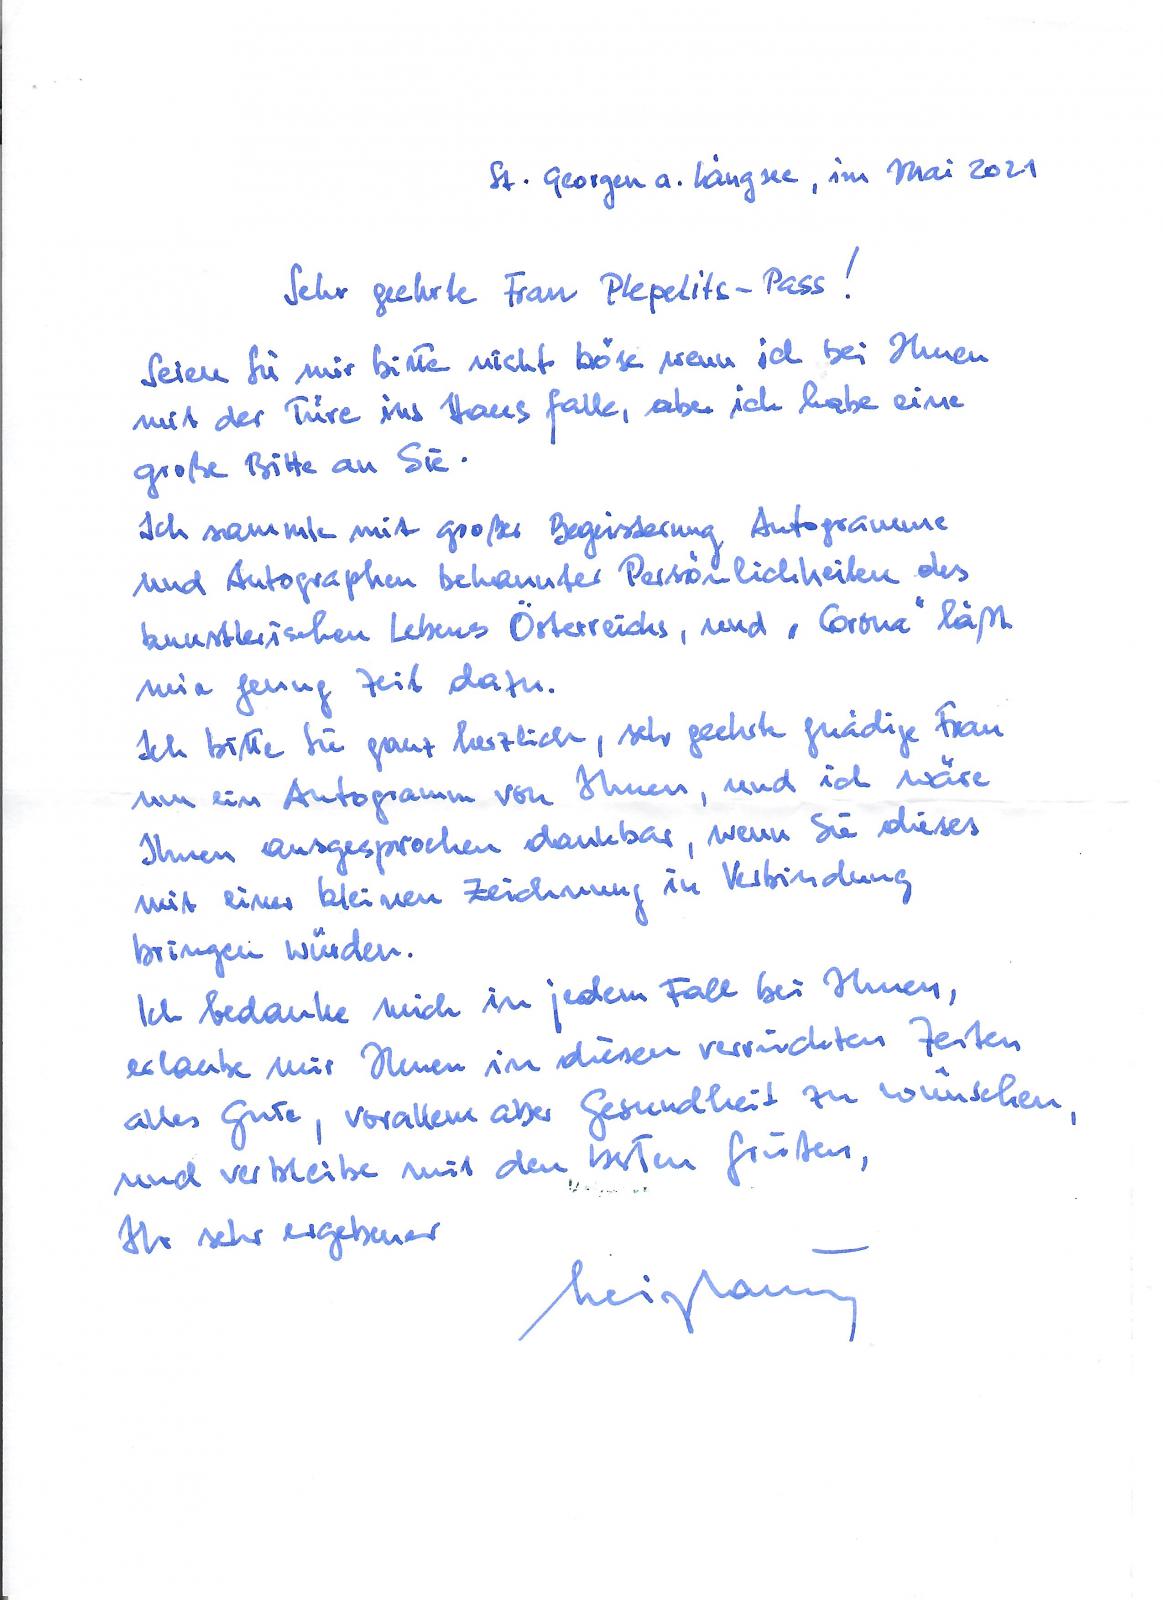 St. Georgen a. Längsee, im Mai 2021
Sehr geehrte Frau Plepelits-Pass!
Seien Sie mir bitte nicht böse wenn ich bei Ihnen
mit der Türe ins Haus falle, aber ich habe eine
große Bitte an Sie.
Ich sammle mit großer Begeisterung Autogramme
und Autographen bekannter Persönlichkeiten des
künstlerischen Lebens Österreichs, und „Corona“ läßt
mir genug Zeit dazu.
Ich bitte Sie ganz herzlich, sehr geehrte gnädige Frau
um ein Autogramm von Ihnen, und ich wäre
Ihnen ausgesprochen dankbar, wenn Sie dieses
mit einer kleinen Zeichnung in Verbindung
bringen würden.
Ich bedanke mich in jedem Fall bei Ihnen,
erlaube mir Ihnen in diesen verrückten Zeiten
alles Gute, vorallem aber Gesundheit zu wünschen,
und verbleibe mit den besten Grüßen,
Ihr sehr ergebener